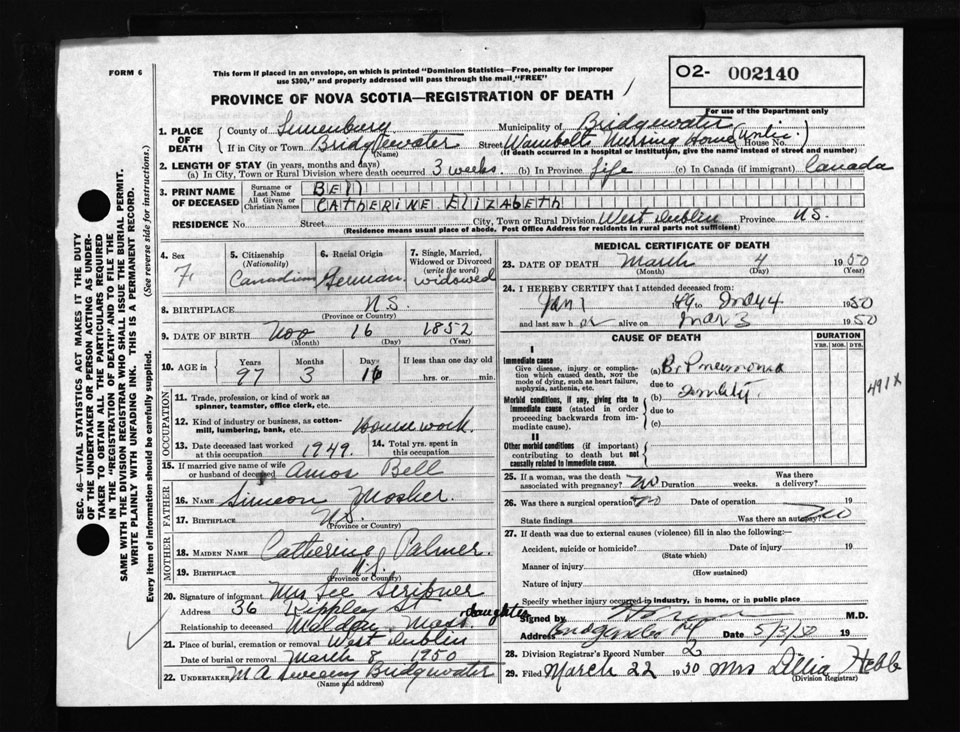 FORM 6
This form if placed in an envelope, on which is printed "Dominion Statistics—Free, penalty for improper
use $300," and properly addressed will pass through the mail, "FREE"
O2- 002140
PROVINCE OF NOVA SCOTIA—REGISTRATION OF DEATH
For use of the Department only
1. PLACE OF DEATH { County of Lunenburg Municipality of Bridgewater
If in City or Town Bridgewater (Name) Street Wambolt Nursing Home House No.
(If death occurred in a hospital or institution, give the name instead of street and number)
2. LENGTH OF STAY (in years, months and days)
(a) In City, Town or Rural Division where death occurred 3 weeks (b) In Province Life (c) In Canada (if immigrant) Canada
3. PRINT NAME OF DECEASED { Surname or Last Name BELL
All Given or Christian Names CATHERINE ELIZABETH
RESIDENCE No. Street City, Town or Rural Division West Dublin Province N.S.
(Residence means usual place of abode. Post Office Address for residents in rural parts not sufficient)
4. Sex F 5. Citizenship (Nationality) Canadian 6. Racial Origin German 7. Single, Married, Widowed or Divorced (write the word) widowed
8. BIRTHPLACE N.S.
(Province or Country)
9. DATE OF BIRTH Nov 16 1852
(Month) (Day) (Year)
10. AGE in { Years 97 Months 3 Days 16 If less than one day old
hrs. or min.
OCCUPATION
11. Trade, profession, or kind of work as
spinner, teamster, office clerk, etc.
12. Kind of industry or business, as cotton-
mill, lumbering, bank, etc. Housework.
13. Date deceased last worked at this occupation 1949. 14. Total yrs. spent in this occupation
15. If married give name of wife
or husband of deceased Amos Bell
FATHER
16. NAME Simeon Mosher.
17. BIRTHPLACE N.S.
(Province or Country)
MOTHER
18. MAIDEN NAME Catherine Palmer.
19. BIRTHPLACE N.S.
(Province or Country)
20. Signature of informant Mrs Lee Scribner
Address 36 St
Relationship to deceased Malden, Mass. daughter
21. Place of burial, cremation or removal West Dublin
Date of burial or removal March 8 1950
22. UNDERTAKER M A Sweeny Bridgewater
(Name and address)
MEDICAL CERTIFICATE OF DEATH
23. DATE OF DEATH March 4 1950
(Month) (Day) (Year)
24. I HEREBY CERTIFY that I attended deceased from:
Jan 1 49 to Mar 4 1950
and last saw h er alive on Mar 3 1950
CAUSE OF DEATH
DURATION
YRS. MOS. DYS.
I
Immediate cause
Give disease, injury or complication which caused death, NOT the mode of dying, such as heart failure, asphyxia, asthenia, etc.
(a) Br Pneumonia
due to
Morbid conditions, if any, giving rise to immediate cause (stated in order proceeding backwards from immediate cause).
(b) Senility
due to
(c)
491X
II
Other morbid conditions (if important) contributing to death but not causally related to immediate cause.
25. If a woman, was the death associated with pregnancy? No Duration weeks. Was there a delivery?
26. Was there a surgical operation? No Date of operation 19
State findings Was there an autopsy? No
27. If death was due to external causes (violence) fill in also the following:
Accident, suicide or homicide? Date of injury 19
(State which)
Manner of injury
(How sustained)
Nature of injury
Specify whether injury occurred in industry, in home, or in public place
Signed by M.D.
Address Bridgewater Date 5/3/50 19
28. Division Registrar's Record Number 2
29. Filed March 22 1950 Mrs Lillia Hebb
(Division Registrar)
SEC. 46—VITAL STATISTICS ACT MAKES IT THE DUTY
OF THE UNDERTAKER OR PERSON ACTING AS UNDER-
TAKER TO OBTAIN ALL THE PARTICULARS REQUIRED
IN THE "REGISTRATION OF DEATH" AND TO FILE THE
SAME WITH THE DIVISION REGISTRAR WHO SHALL ISSUE THE BURIAL PERMIT.
WRITE PLAINLY WITH UNFADING INK. THIS IS A PERMANENT RECORD.
Every item of information should be carefully supplied. (See reverse side for instructions.)